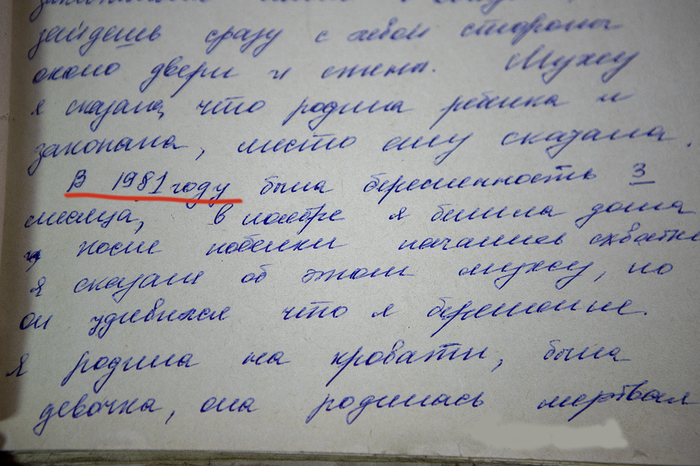 зайдешь сразу с левой стороны
около двери и стены. Мужу
я сказала, что родила ребенка и
закопала, место ему сказала.
В 1981 году была беременность 3
месяца, в ноябре я белила дома
и после побелки начались схватки
я сказала об этом мужу, но
он удивился что я беременна.
я родила на кровати, была
девочка, она родилась мертвая